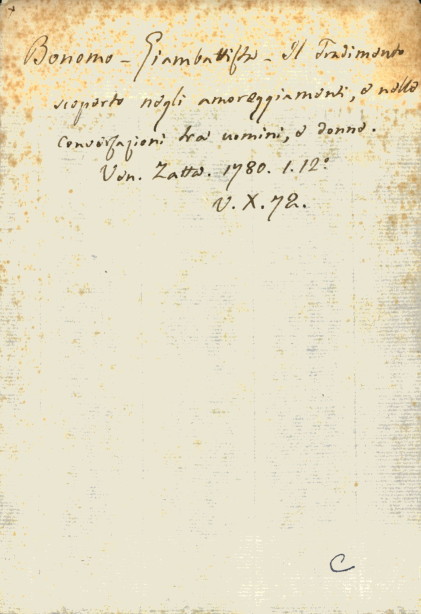 Bonomo - Giambattista - Il Tradimento
scoperto negli amoreggiamenti, e nelle
conversazioni tra uomini, e donne.
Ven. Zatta. 1780. 1. 12º
V. X. 72.
C